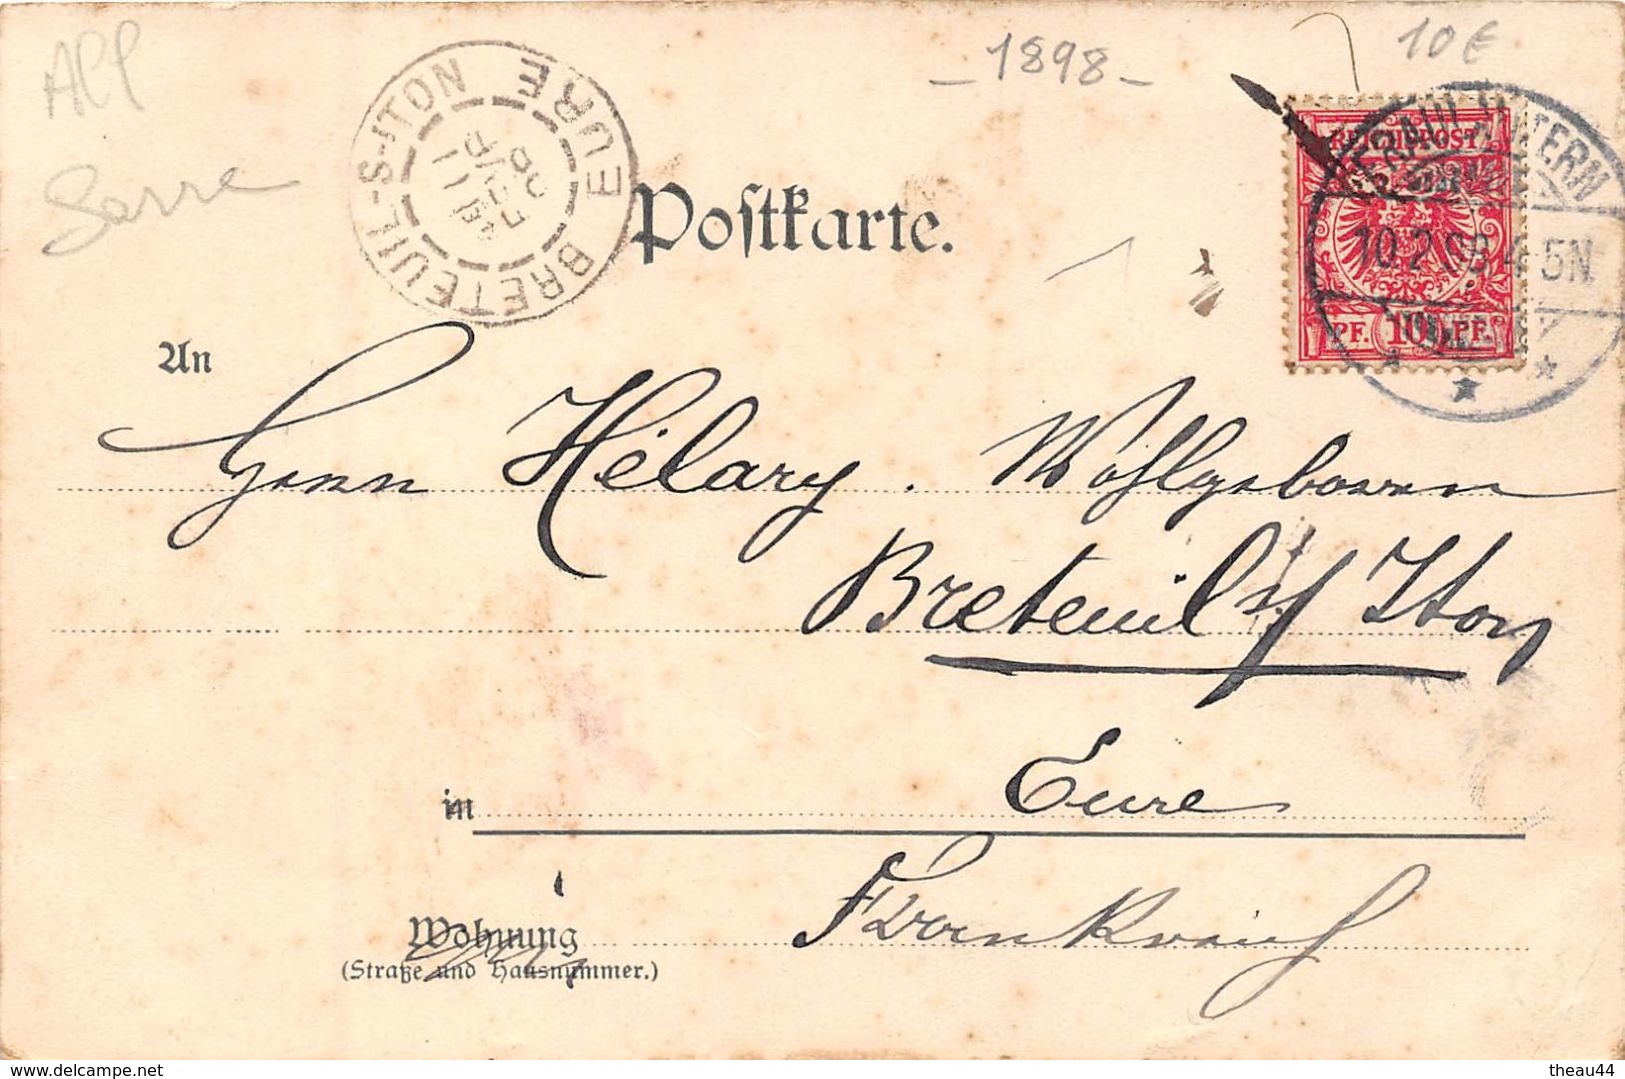 All
Sarre
- 1898 -
10€
BRETEUIL-S-ITON
EURE
11
FEVR
98
REICHSPOST
10 PF.
10.2.98.4-5N
Postkarte.
An
Herrn Hélary. Wohlgeboren
Breteuil s/ Iton
in Eure
Frankreich
Wohnung
(Straße und Hausnummer.)
www.delcampe.net
theau44